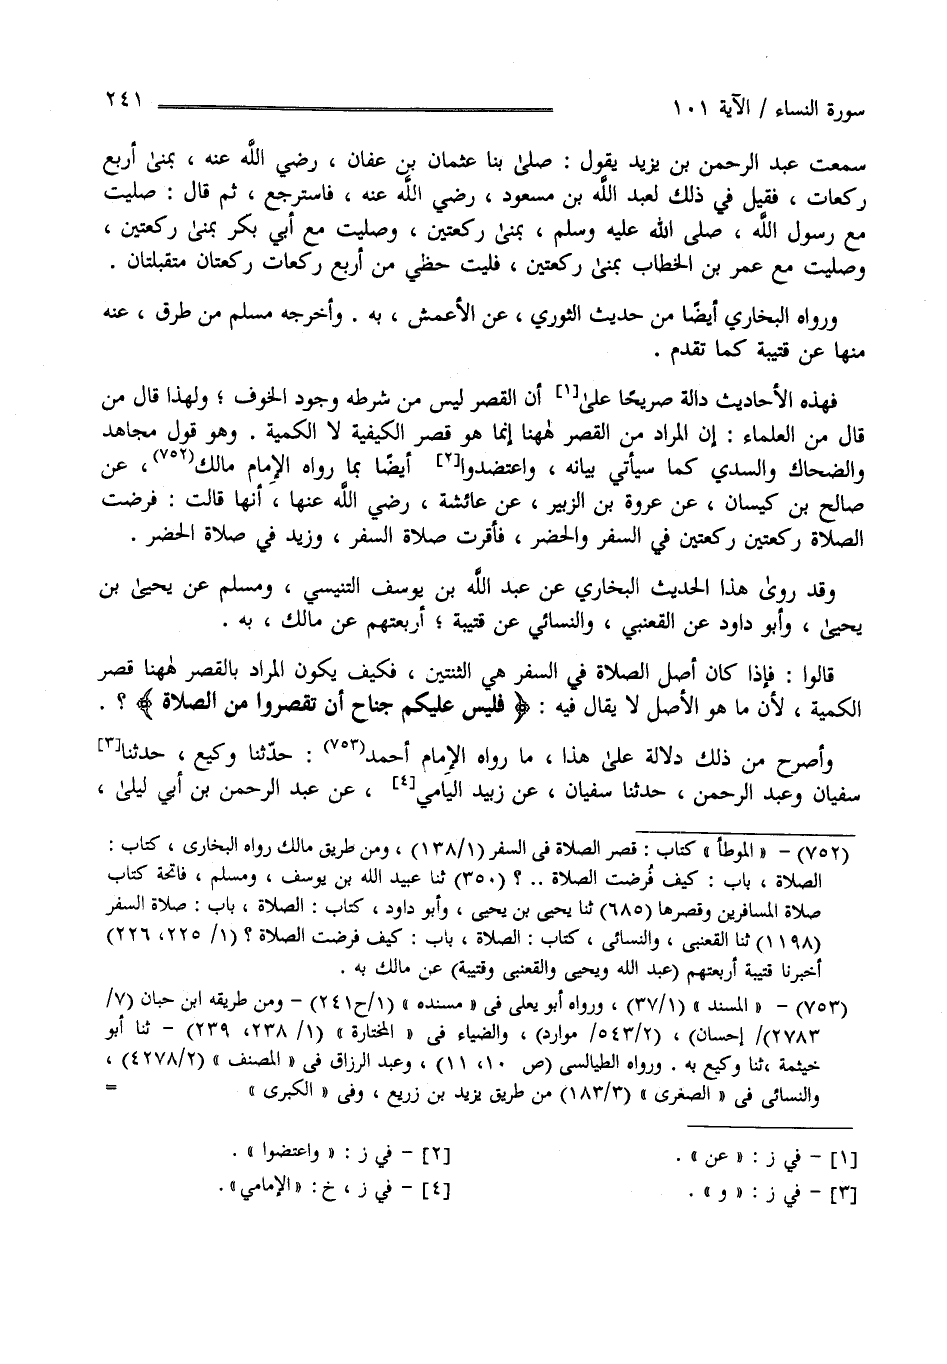 سورة النساء / الآية ١٠١ ٢٤١
سمعت عبد الرحمن بن يزيد يقول : صلىٰ بنا عثمان بن عفان ، رضي اللَّه عنه ، بمنىٰ أربع
ركعات ، فقيل في ذلك لعبد اللَّه بن مسعود ، رضي اللَّه عنه ، فاسترجع ، ثم قال : صليت
مع رسول اللَّه ، صلى الله عليه وسلم ، بمنىٰ ركعتين ، وصليت مع أبي بكر بمنىٰ ركعتين ،
وصليت مع عمر بن الخطاب بمنىٰ ركعتين ، فليت حظي من أربع ركعات ركعتان متقبلتان .
ورواه البخاري أيضًا من حديث الثوري ، عن الأعمش ، به . وأخرجه مسلم من طرق ، عنه
منها عن قتيبة كما تقدم .
فهذه الأحاديث دالة صريحًا علىٰ[١] أن القصر ليس من شرطه وجود الخوف ؛ ولهذا قال من
قال من العلماء : إن المراد من القصر هٰهنا إنما هو قصر الكيفية لا الكمية . وهو قول مجاهد
والضحاك والسدي كما سيأتي بيانه ، واعتضدوا[٢] أيضًا بما رواه الإمام مالك(٧٥٢) ، عن
صالح بن كيسان ، عن عروة بن الزبير ، عن عائشة ، رضي اللَّه عنها ، أنها قالت : فرضت
الصلاة ركعتين ركعتين في السفر والحضر ، فأقرت صلاة السفر ، وزيد في صلاة الحضر .
وقد روىٰ هذا الحديث البخاري عن عبد اللَّه بن يوسف التنيسي ، ومسلم عن يحيىٰ بن
يحيىٰ ، وأبو داود عن القعنبي ، والنسائي عن قتيبة ؛ أربعتهم عن مالك ، به .
قالوا : فإذا كان أصل الصلاة في السفر هي الثنتين ، فكيف يكون المراد بالقصر هٰهنا قصر
الكمية ، لأن ما هو الأصل لا يقال فيه : ﴿ فليس عليكم جناح أن تقصروا من الصلاة ﴾ ؟ .
وأصرح من ذلك دلالة علىٰ هذا ، ما رواه الإمام أحمد(٧٥٣) : حدّثنا وكيع ، حدثنا[٣]
سفيان وعبد الرحمن ، حدثنا سفيان ، عن زبيد اليامي[٤] ، عن عبد الرحمن بن أبي ليلىٰ ،
(٧٥٢) - « الموطأ » كتاب : قصر الصلاة فى السفر (١٣٨/١) ، ومن طريق مالك رواه البخارى ، كتاب :
الصلاة ، باب : كيف فُرضت الصلاة .. ؟ (٣٥٠) ثنا عبيد الله بن يوسف ، ومسلم ، فاتحة كتاب
صلاة المسافرين وقصرها (٦٨٥) ثنا يحيى بن يحيى ، وأبو داود ، كتاب : الصلاة ، باب : صلاة السفر
(١١٩٨) ثنا القعنبى ، والنسائى ، كتاب : الصلاة ، باب : كيف فرضت الصلاة ؟ (١/ ٢٢٥، ٢٢٦)
أخبرنا قتيبة أربعتهم (عبد الله ويحيى والقعنبى وقتيبة) عن مالك به .
(٧٥٣) - « المسند » (٣٧/١) ، ورواه أبو يعلى فى « مسنده » (١/ح٢٤١) - ومن طريقه ابن حبان (٧/
٢٧٨٣)/ إحسان) ، (٥٤٣/٢/ موارد) ، والضياء فى « المختارة » (١/ ٢٣٨، ٢٣٩) - ثنا أبو
خيثمة ،ثنا وكيع به . ورواه الطيالسي (ص ١٠، ١١) ، وعبد الرزاق فى « المصنف » (٤٢٧٨/٢) ،
والنسائى فى « الصغرى » (١٨٣/٣) من طريق يزيد بن زريع ، وفى « الكبرى » =
[١] - في ز : « عن » . [٢] - في ز : « واعتضوا » .
[٣] - في ز : « و » . [٤] - في ز ، خ : « الإمامي» .